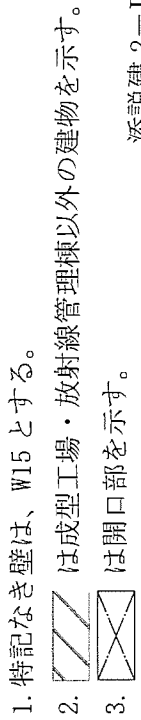 1. 特記なき壁は、W15 とする。
2. は成型工場・放射線管理棟以外の建物を示す。
3. は開口部を示す。
添説建 2―